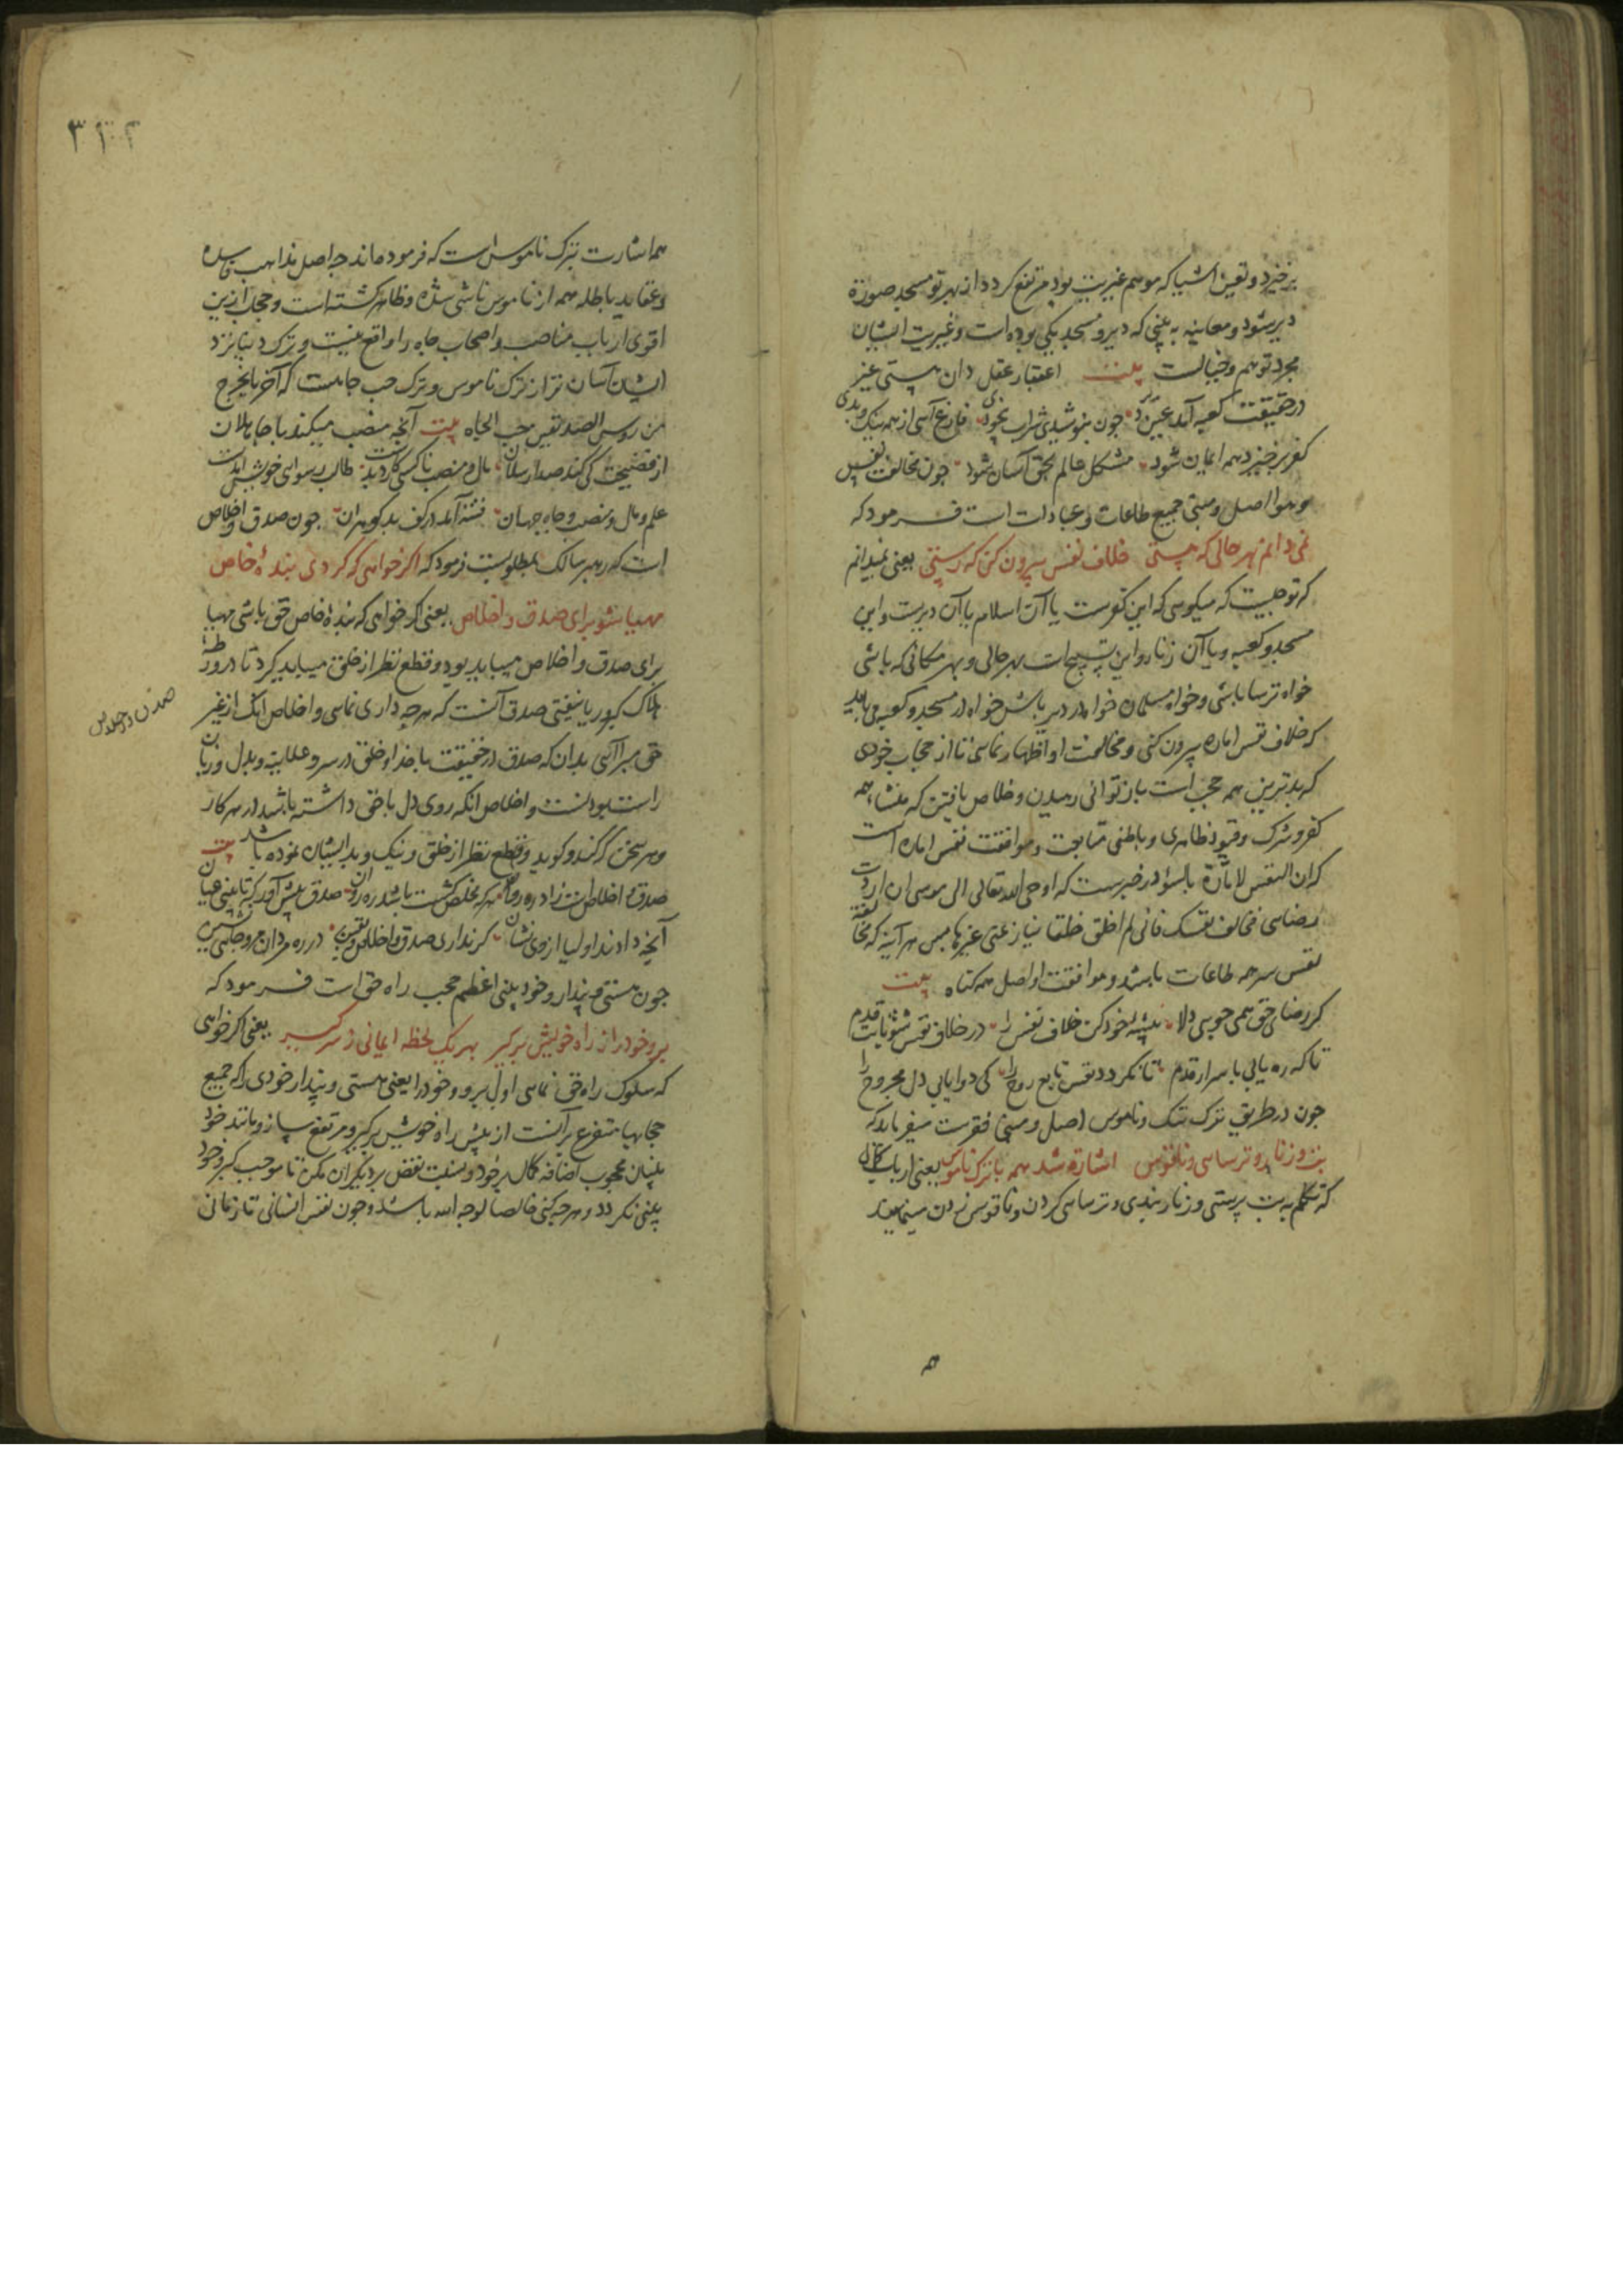 برخیزد و تعین اشیا که موهم غیریت بود مرتفع کردد از بهر تو مسجد صورة
دیر شود و معاینه به بینی که دیر و مسجد یکی بوده است و غیریت ایشان
مجرد توهم و خیالست بیت اعتبار عقل دان هستی غیر
در حقیقت کعبه آمد عین دیر جون بنوشیدی شراب بیخودی فارغ آئی از همه نیک و بدی
کفر برخیزد همه ایمان شود مشکل عالم بحق آسان شود جون مخالفت نفس
و هوا اصل و مبنی جمیع طاعات و عبادات است فرمود که
نمی دانم بهر حالی که هستی خلاف نفس بیرون کن که رستی یعنی نمیدانم
که تو جیست که میکوی که این کفرست یا آن اسلام یا آن دیرست و این
مسجد و کعبه و یا آن زنار و این تسبیح است بهر حالی و بهر مکانی که باشی
خواه ترسا باشی و خواه مسلمان خواه در دیر باش خواه در مسجد و کعبه می باید
که خلاف نفس اماره بیرون کنی و مخالفت او اظهار نمائی تا از حجاب خودی
که بدترین همه حجب است باز توانی رهیدن و خلاص یافتن که منشاء همه
کفر و شرک و قیود ظاهری و باطنی متابعت و موافقت نفس اماره است
که ان النفس لامارة بالسوء در خبرست که اوحی الله تعالی الی موسی ان اردت
رضائی فخالف نفسک فانی لم اخلق خلقا ینازعنی غیرها پس هر آینه که مخالفة
نفس سر همه طاعات باشد و موافقت او اصل همه کناه بیت
کر رضای حق همی جویی دلا پیشه خود کن خلاف نفس را در خلاف نفس شو ثابت قدم
تا که ره یابی باسرار قدم تا نکردد نفس تابع روح را کی دوا یابی دل مجروح را
جون در طریق ترک ننک و ناموس اصل و مبنی فقرست میفرماید که
بت و زنار و ترسائی و ناقوس اشارة شد همه با ترک ناموس یعنی ارباب کمال
که تکلم به بت پرستی و زنار بندی و ترسائی کردن و ناقوس زدن مینمایند
همه
همه اشارت بترک ناموس است که فرموده اند جه اصل مذاهب فاسده
و عقاید باطله همه از ناموس ناشی شده و ظاهر کشته است و حجاب ازین
اقوی ارباب مناصب و اصحاب جاه را واقع نیست و ترک دنیا نزد
ایشان آسان تر از ترک ناموس و ترک حب جاهست که آخر ما یخرج
من روس الصدیقین حب الجاه بیت آنجه منصب میکند با جاهلان
از فضیحت کی کند صد ارسلان مال و منصب ناکسی کارد بدست طالب رسوائی خویش آمدست
علم و مال و منصب و جاه جهان فتنه آمد در کف بدکوهران جون صدق و اخلاص
است که رهبر سالک بمطلوبست فرمود که اکر خواهی که کردی بندۀ خاص
مهیا شو برای صدق و اخلاص یعنی اکر خواهی که بندۀ خاص حق باشی مهیا
برای صدق و اخلاص میباید بود و قطع نظر از خلق میباید کرد تا در ورطۀ
هلاک کبر و ریا نیفتی صدق آنست که هر جه داری نمائی و اخلاص انک از غیر
حق مبرا آئی بدان که صدق در حقیقت با خدا و خلق در سر و علانیه و بدل و زبان
راست بودنست و اخلاص انکه روی دل با حق داشته باشد در هر کار
و هر سخن که کند و کوید و قطع نظر از خلق و نیک و بد ایشان نموده باشد بیت
صدق و اخلاص است زاد ره روان هر که مخلص کشت باشد ره روان صدق پیش آور که تا بینی عیان
آنچه دادند اولیا از وی نشان کر نداری صدق و اخلاص و یقین در ره مردان مرو جائی نشین
جون هستی و پندار و خود بینی اعظم حجب راه حق است فرمود که
برو خود را ز راه خویش برکیر بهر یک لحظه ایمانی ز سر کیر یعنی اکر خواهی
که سلوک راه حق نمائی اول برو و خود را یعنی هستی و پندار خودی را که جمیع
حجابها متفرع بر آنست از پیش راه خویش برکیر و مرتفع ساز و مانند خود
بینان محجوب اضافه کمال بر خود و نسبت نقص بر دیکران مکن تا موجب کبر و خود
بینی نکردد و هر جه کنی خالصا لوجه الله باشد و جون نفس انسانی تا زمانی
صدق و اخلاص